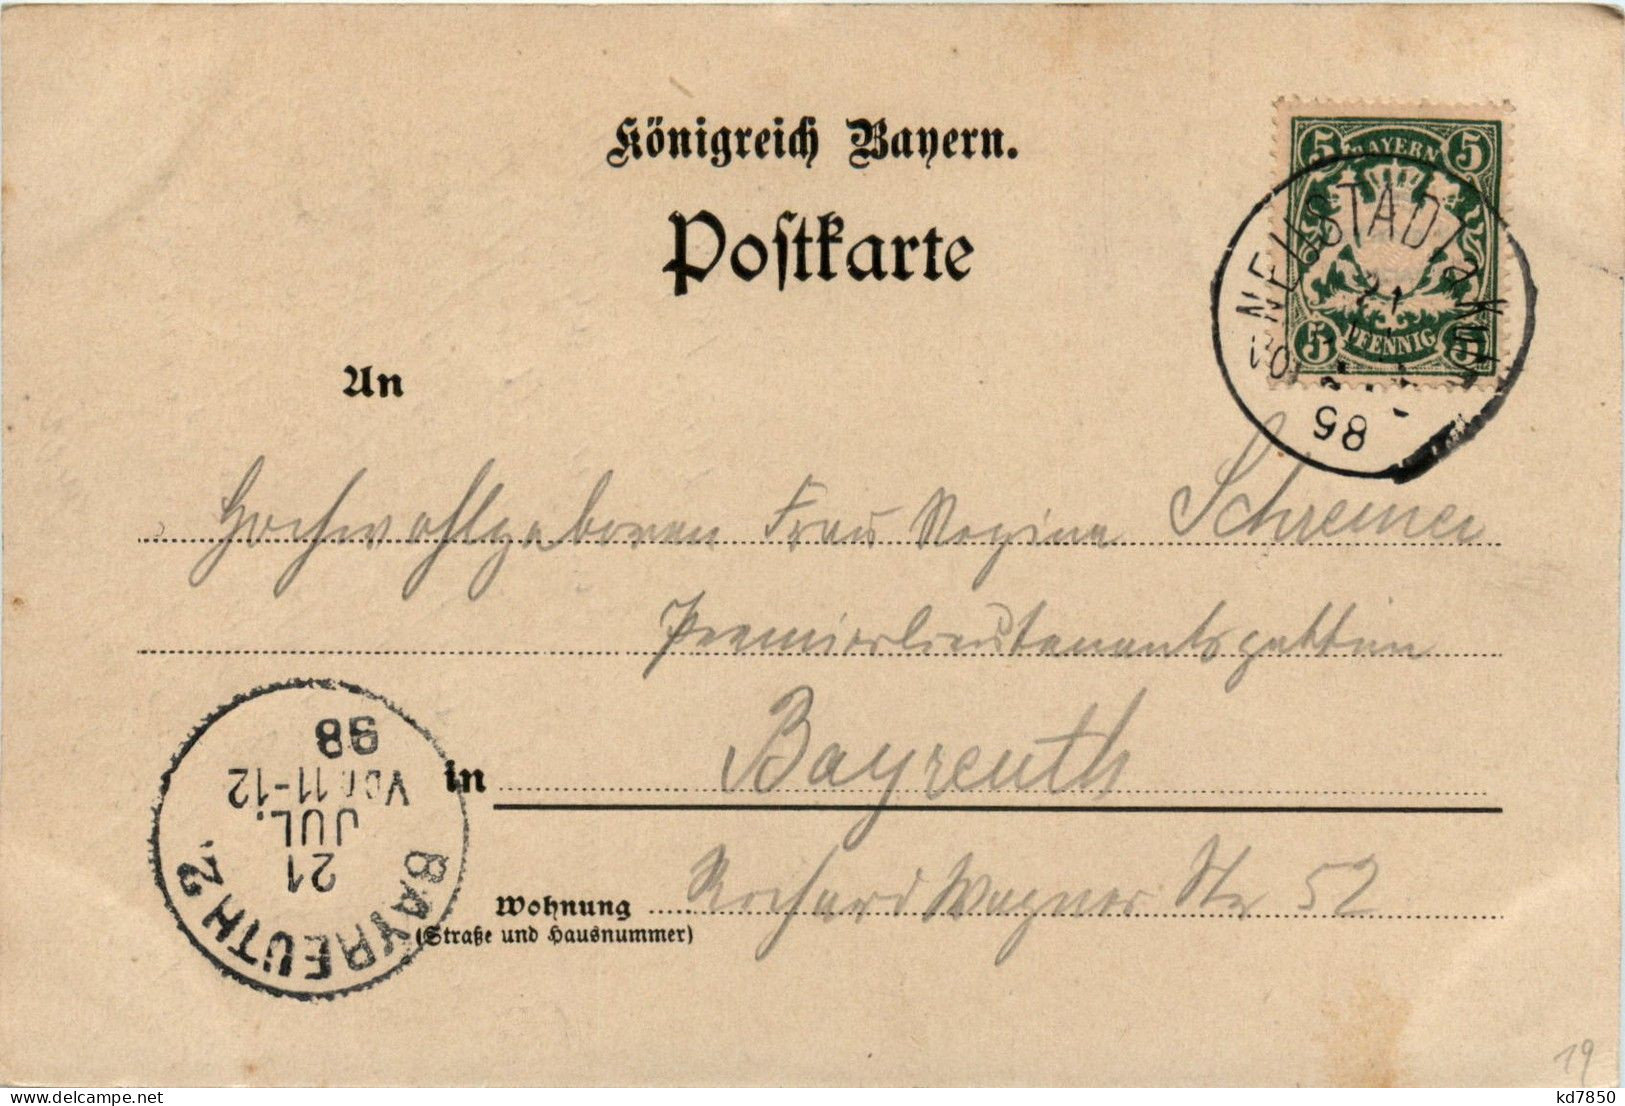 Königreich Bayern.
Postkarte
BAYERN
5 5
5 5
PFENNIG
NEUSTADT a. KULM
21
98
An
Hochwohlgeboren Frau Regina Schreiner
Premierlieutenantsgattin
in Bayreuth
Wohnung Richard Wagner Str 52
(Straße und Hausnummer)
BAYREUTH 2.
21
JUL.
Vor. 11-12
98
19
delcampe.net
kd7850